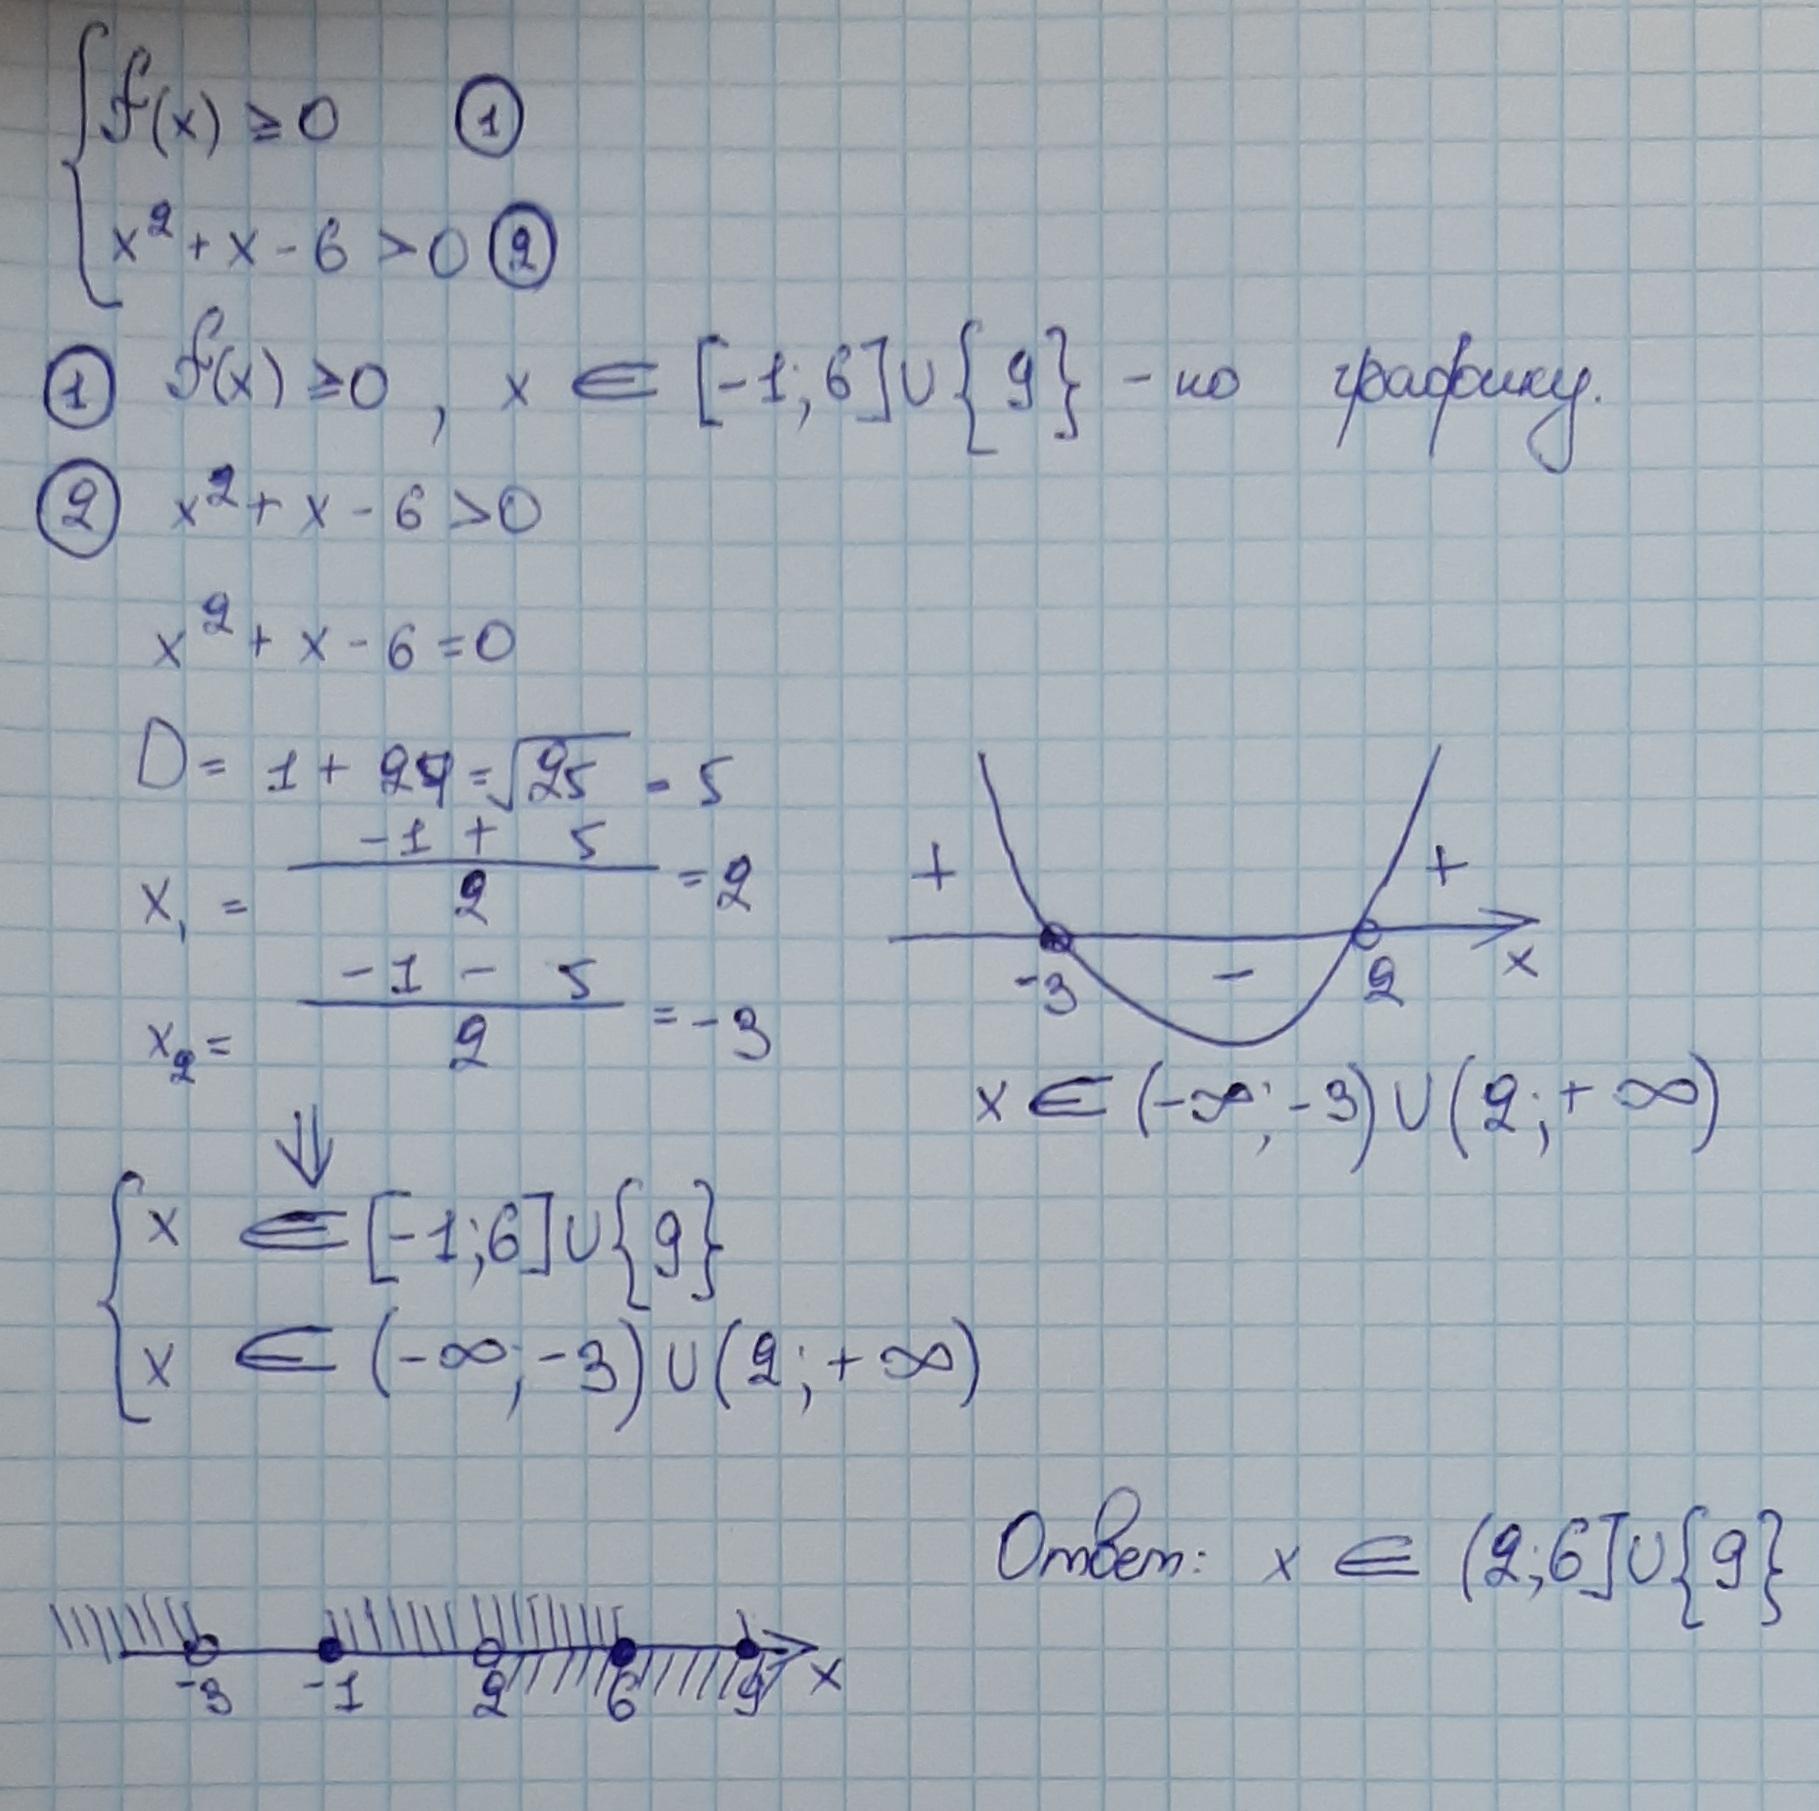 { f(x) ≥ 0 ①
x² + x - 6 > 0 ②
① f(x) ≥ 0, x ∈ [-1; 6] ∪ {9} - по графику.
② x² + x - 6 > 0
x² + x - 6 = 0
D = 1 + 24 = √25 = 5
x₁ = (-1 + 5)/2 = 2
x₂ = (-1 - 5)/2 = -3
+ - +
-3 2 x
x ∈ (-∞; -3) ∪ (2; +∞)
⇓
{ x ∈ [-1; 6] ∪ {9}
x ∈ (-∞; -3) ∪ (2; +∞)
Ответ: x ∈ (2; 6] ∪ {9}
-3 -1 2 6 9 x